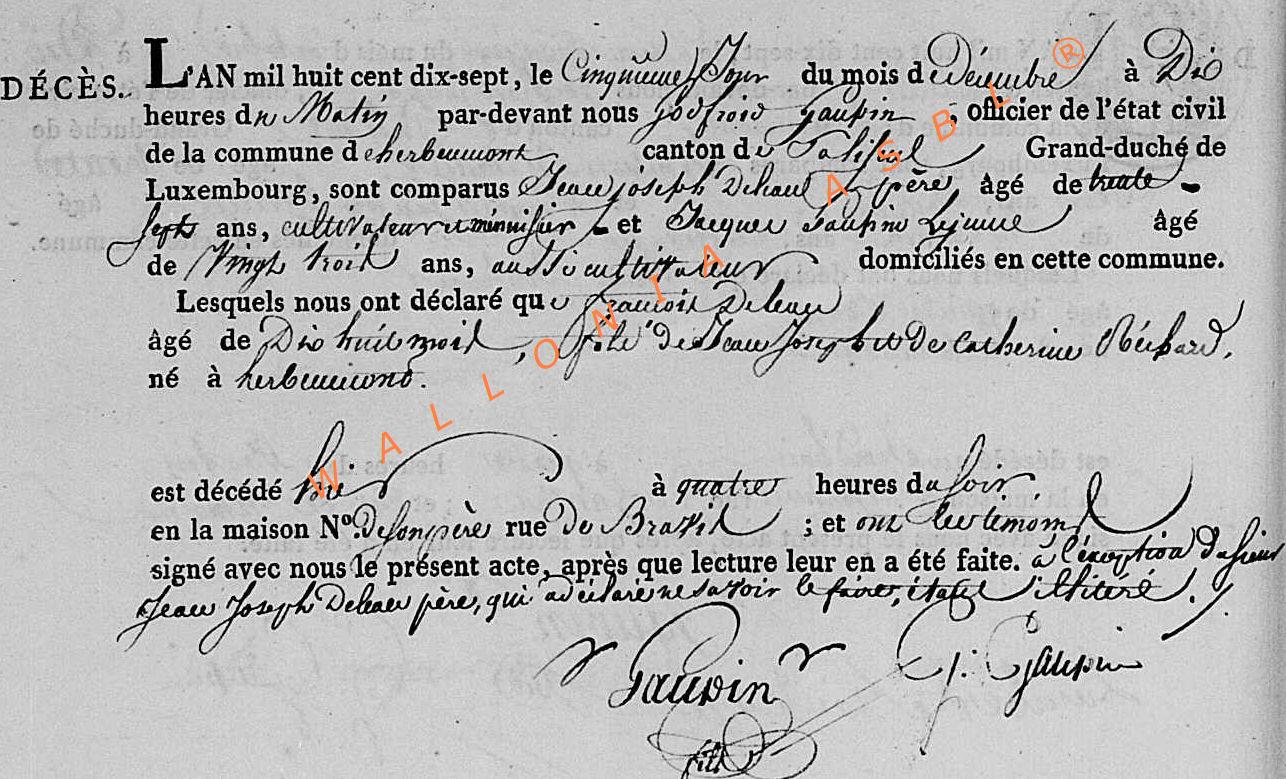 DÉCÈS.. L'AN mil huit cent dix-sept, le Cinquieme Jour du mois de Décembre à Dix
heures du Matin par-devant nous Godfroid Gaupin, officier de l'état civil
de la commune de herbeumont canton de Paliseul Grand-duché de
Luxembourg, sont comparus Jean joseph Deleau père, âgé de trente
Septs ans, cultivateur et minuisier, et Jacques Gaupin Lejeune âgé
de Vingt trois ans, aussi cultivateur domiciliés en cette commune.
Lesquels nous ont déclaré que françois Deleau
âgé de Dix huit mois, fils de Jean Joseph et de Catherine Réchard,
né à herbeumont.
est décédé hier à quatres heures du soir
en la maison N.o De son père rue Du Brasil; et ont les témoins
signé avec nous le présent acte, après que lecture leur en a été faite. à l'éxception du sieur
Jean Joseph Deleau père, qui a déclaré ne savoir le faire, étant illitéré.
Gaupin J: Gaupin
WALLONIA ASBL ®